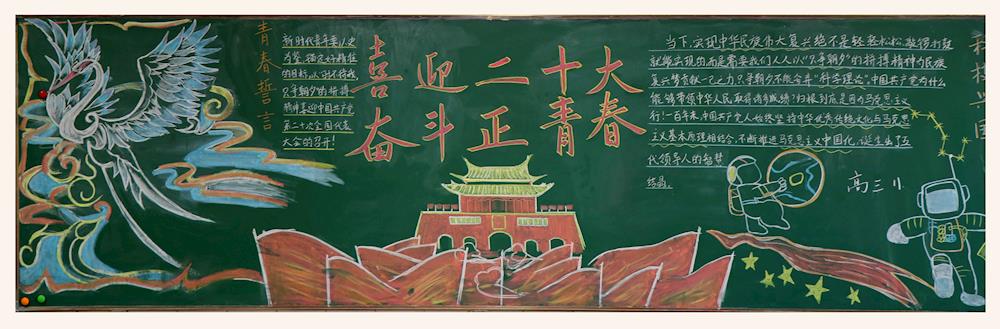 青春誓言
新时代青年要以史
为鉴,确定好精准
的目标,以时不待我,
只争朝夕的拼搏
精神喜迎中国共产党
第二十次全国代表
大会的召开!
喜迎二十大
奋斗正青春
当下,实现中华民族伟大复兴绝不是轻轻松松,敲锣打鼓
就能实现的而是需要我们人人以“只争朝夕”的拼搏精神为民族
复兴梦贡献一己之力只争朝夕不能舍弃“科学理论”,中国共产党为什么
能够带领中华人民取得诸多成绩?归根到底是因为马克思主义
行!一百年来,中国共产党人始终坚持中华优秀传统文化与马克思
主义基本原理相结合,不断推进马克思主义中国化,诞生出了五
代领导人的智慧
结晶。
科技兴国
高三